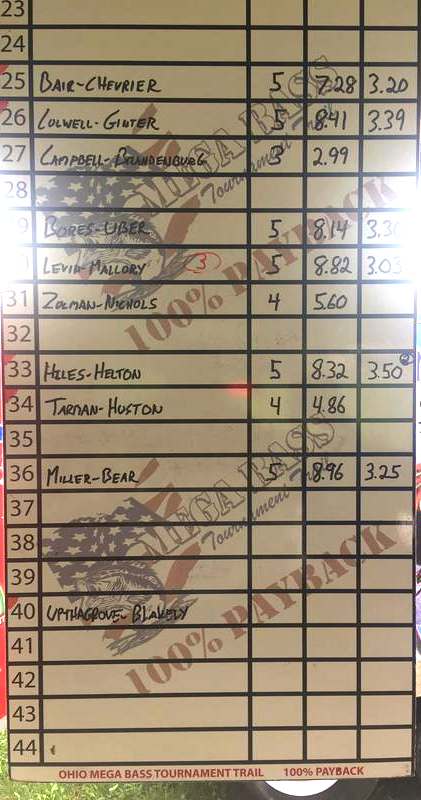 23
24
25 BAIR-CHEVRIER 5 7.28 3.20
26 COLWELL-GINTER 5 8.41 3.39
27 CAMPBELL-BRANDENBURG 3 2.99
28
9 BORES-UBER 5 8.14 3.30
LEVIN-MALLORY 3 5 8.82 3.03
31 ZOLMAN-NICHOLS 4 5.60
32
33 HILES-HELTON 5 8.32 3.50 2
34 TARMAN-HUSTON 4 4.86
35
36 MILLER-BEAR 5 8.96 3.25
37
38
39
40 UPTHAGROVE-BLAKELY
41
42
43
44
MEGA BASS
Tournament Trail
100% PAYBACK
MEGA BASS
Tournament Trail
100% PAYBACK
OHIO MEGA BASS TOURNAMENT TRAIL 100% PAYBACK